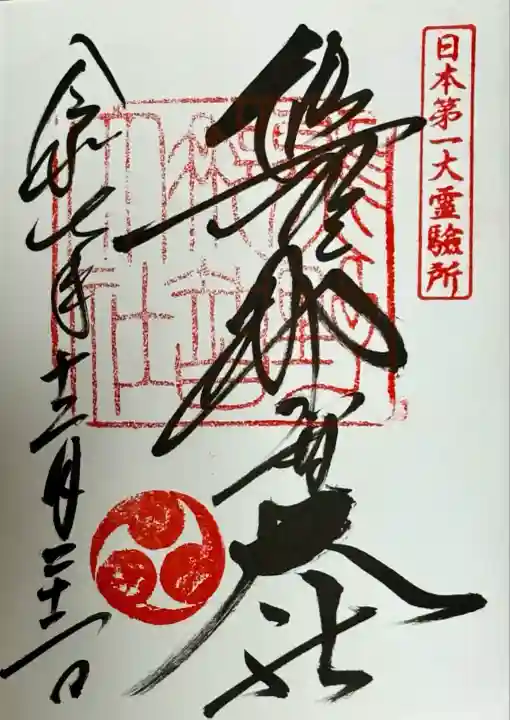 日本第一大霊驗所
熊野那智大社
令和七年十二月二十二日